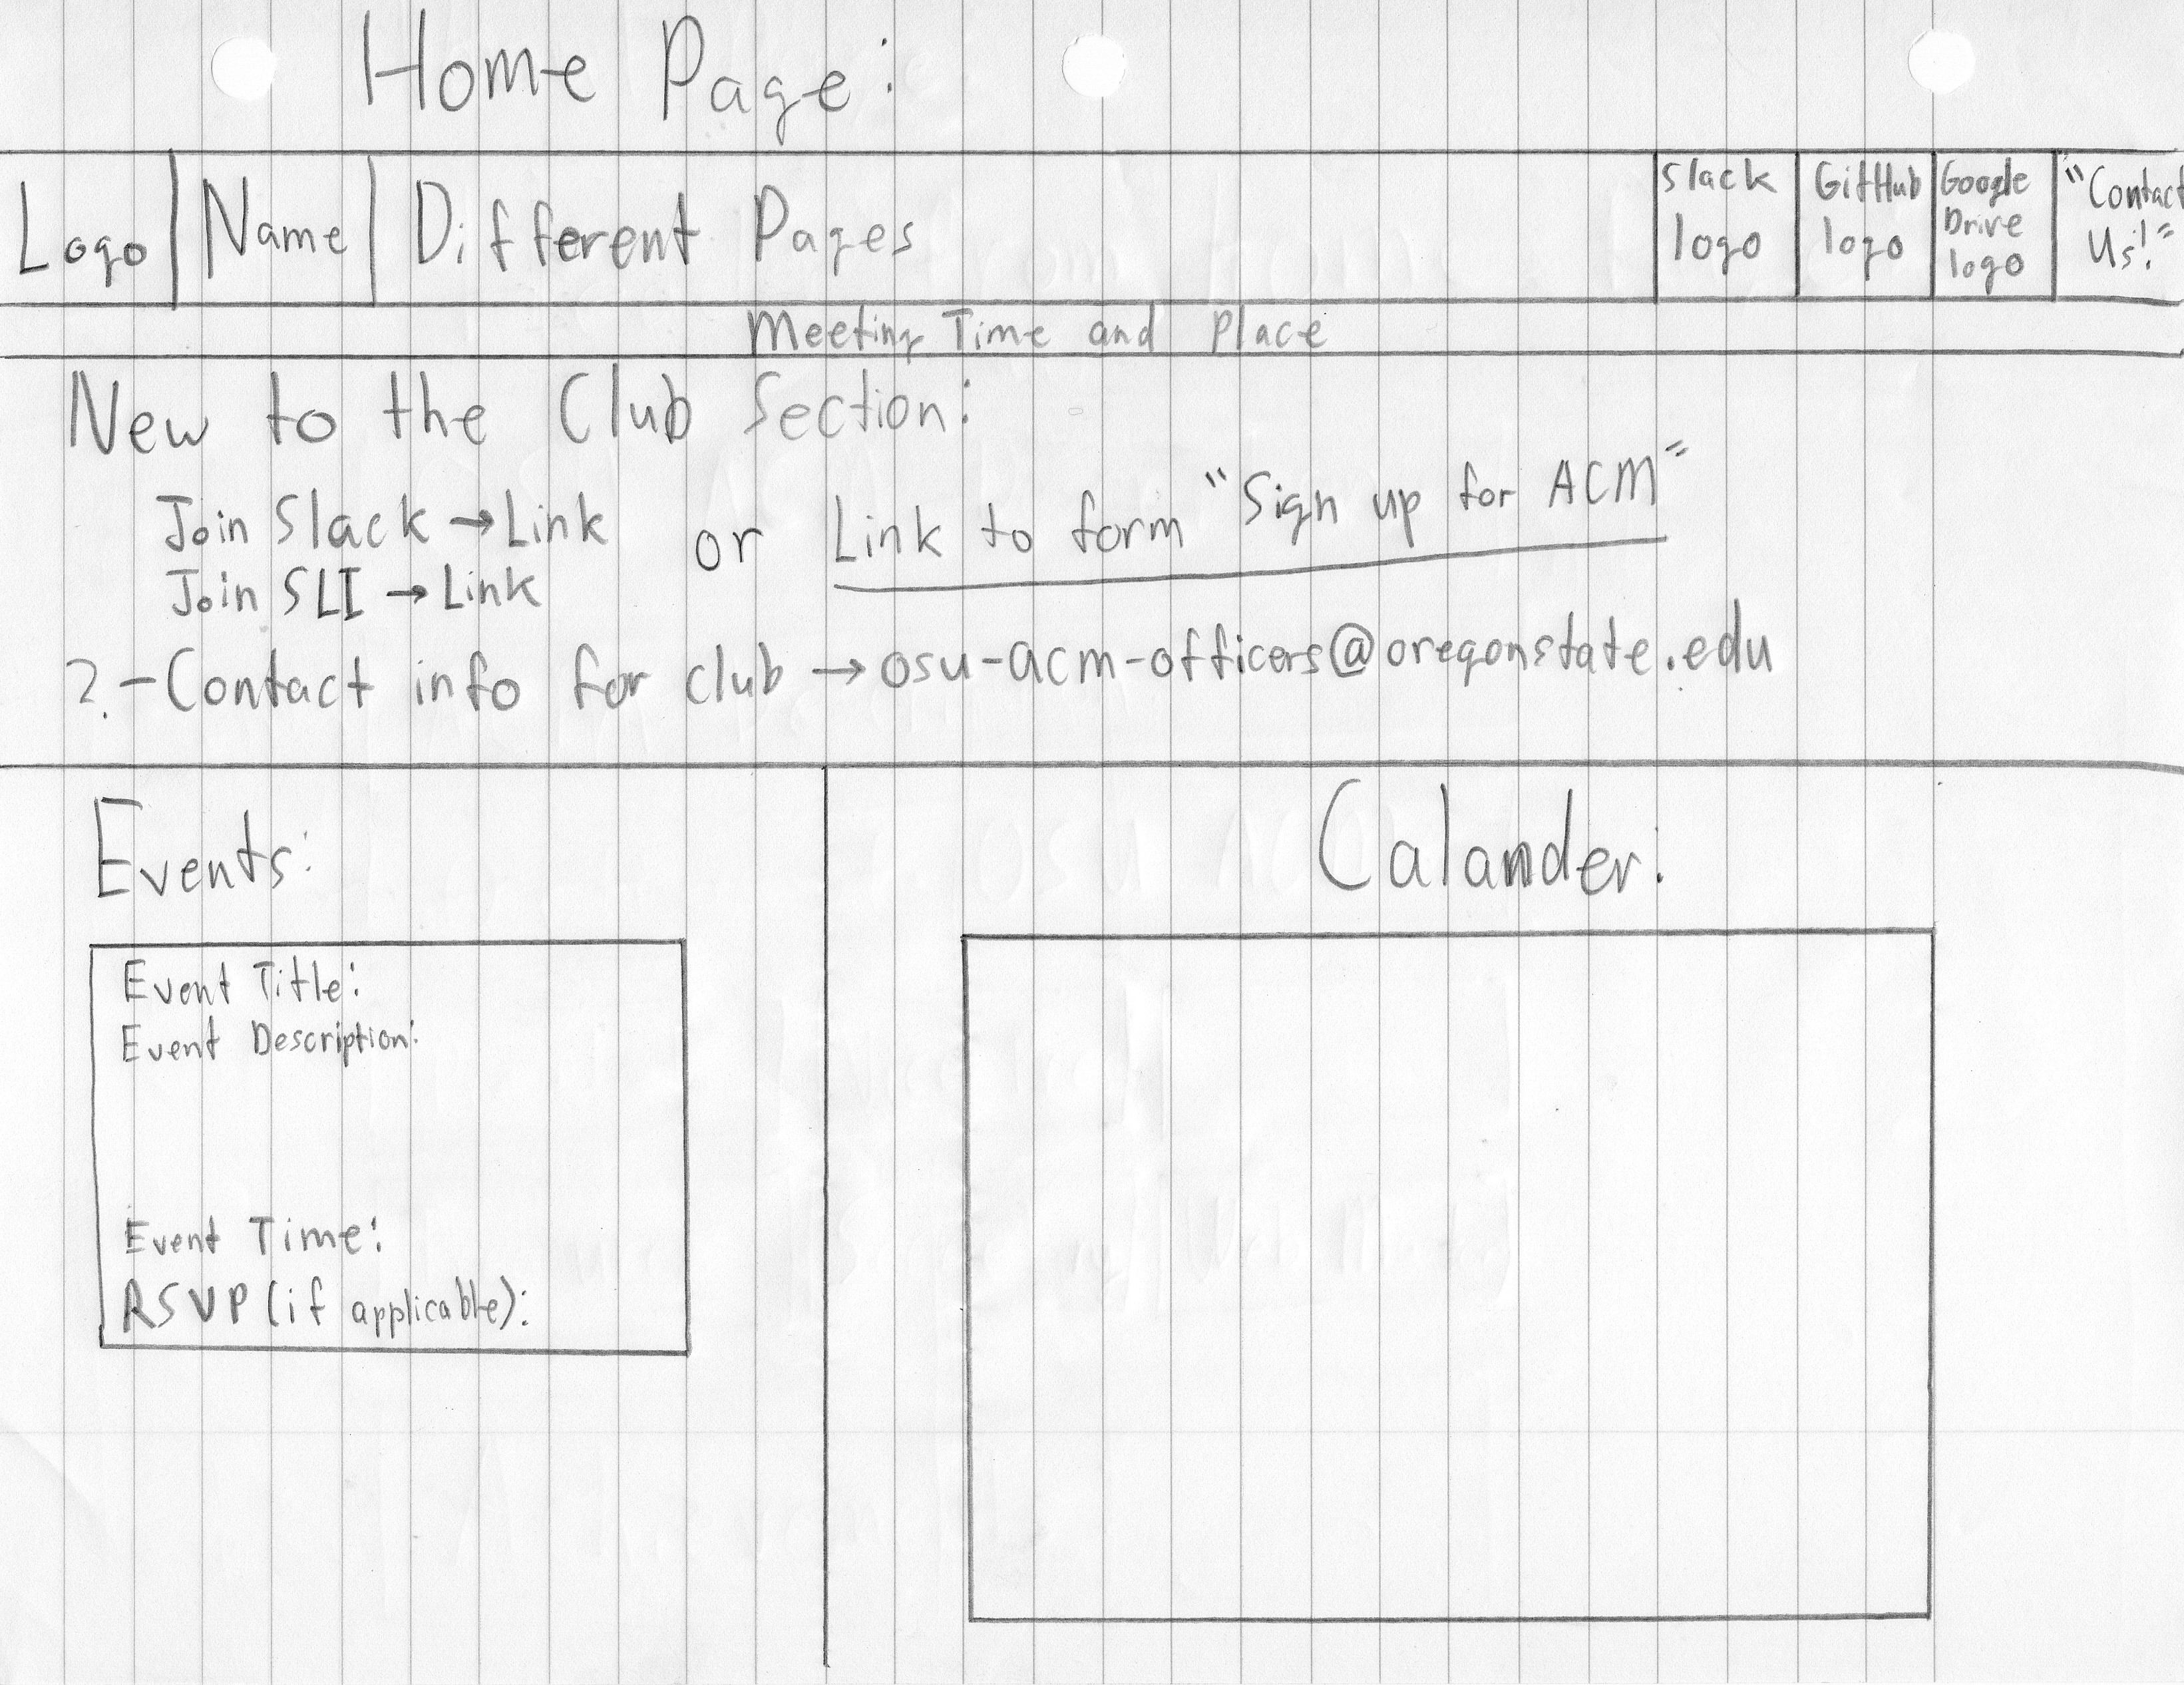 Home Page:
Logo Name Different Pages
Slack logo
GitHub logo
Google Drive logo
"Contact Us!"
Meeting Time and Place
New to the Club Section:
Join Slack → Link or Link to form "Sign up for ACM"
Join SLI → Link
? - Contact info for club → osu-acm-officers@oregonstate.edu
Events:
Event Title:
Event Description:
Event Time:
RSVP (if applicable):
Calander: